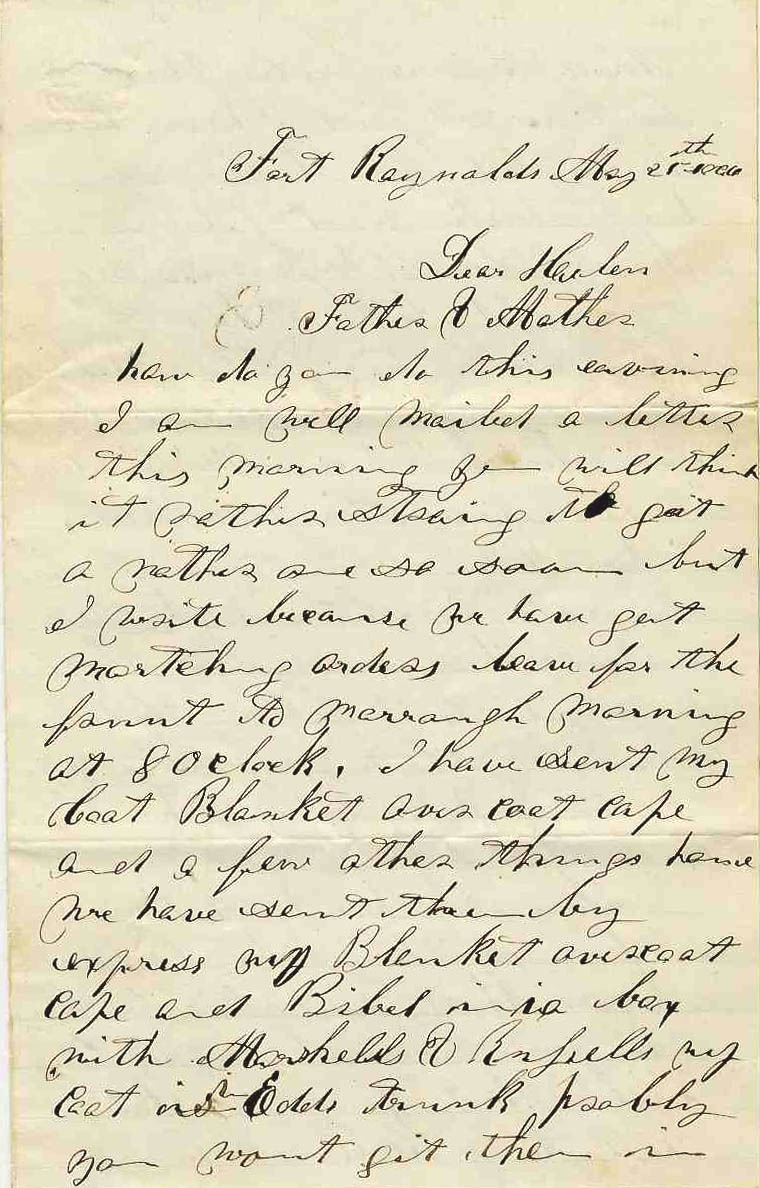 Fort Raynalds May
Dear Harlen
& Father & Mother
how do you do this eavning
I am well mailed a letter
this morning you will think
it rather straing to geit
a nother one so soon but
I write because we have got
martching orders leave for the
frount to morrough morning
at 8 Oclock. I have sent my
Coat Blanket over coat cape
and a few other things home
we have sent them by
express my Blanket overcoat
cape and Bibel in a box
with & my
Coat in Odds trunk probly
you wont git them in